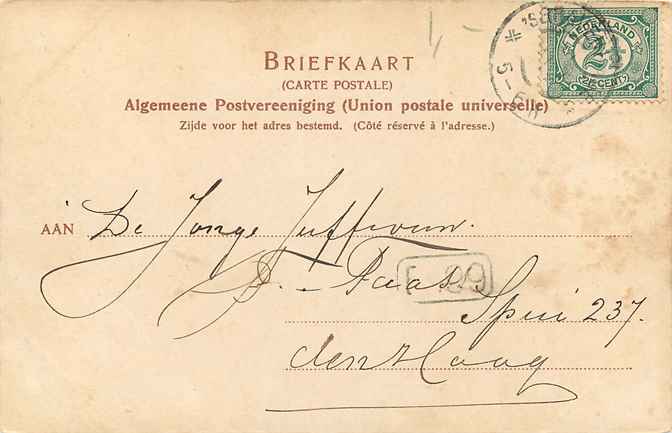 BRIEFKAART
(CARTE POSTALE)
Algemeene Postvereeniging (Union postale universelle)
Zijde voor het adres bestemd. (Côté réservé à l'adresse.)
NEDERLAND
2½
2½CENT
AAN De Jonge Juffrouw.
D. Paas
29
Spui 237.
den Haag